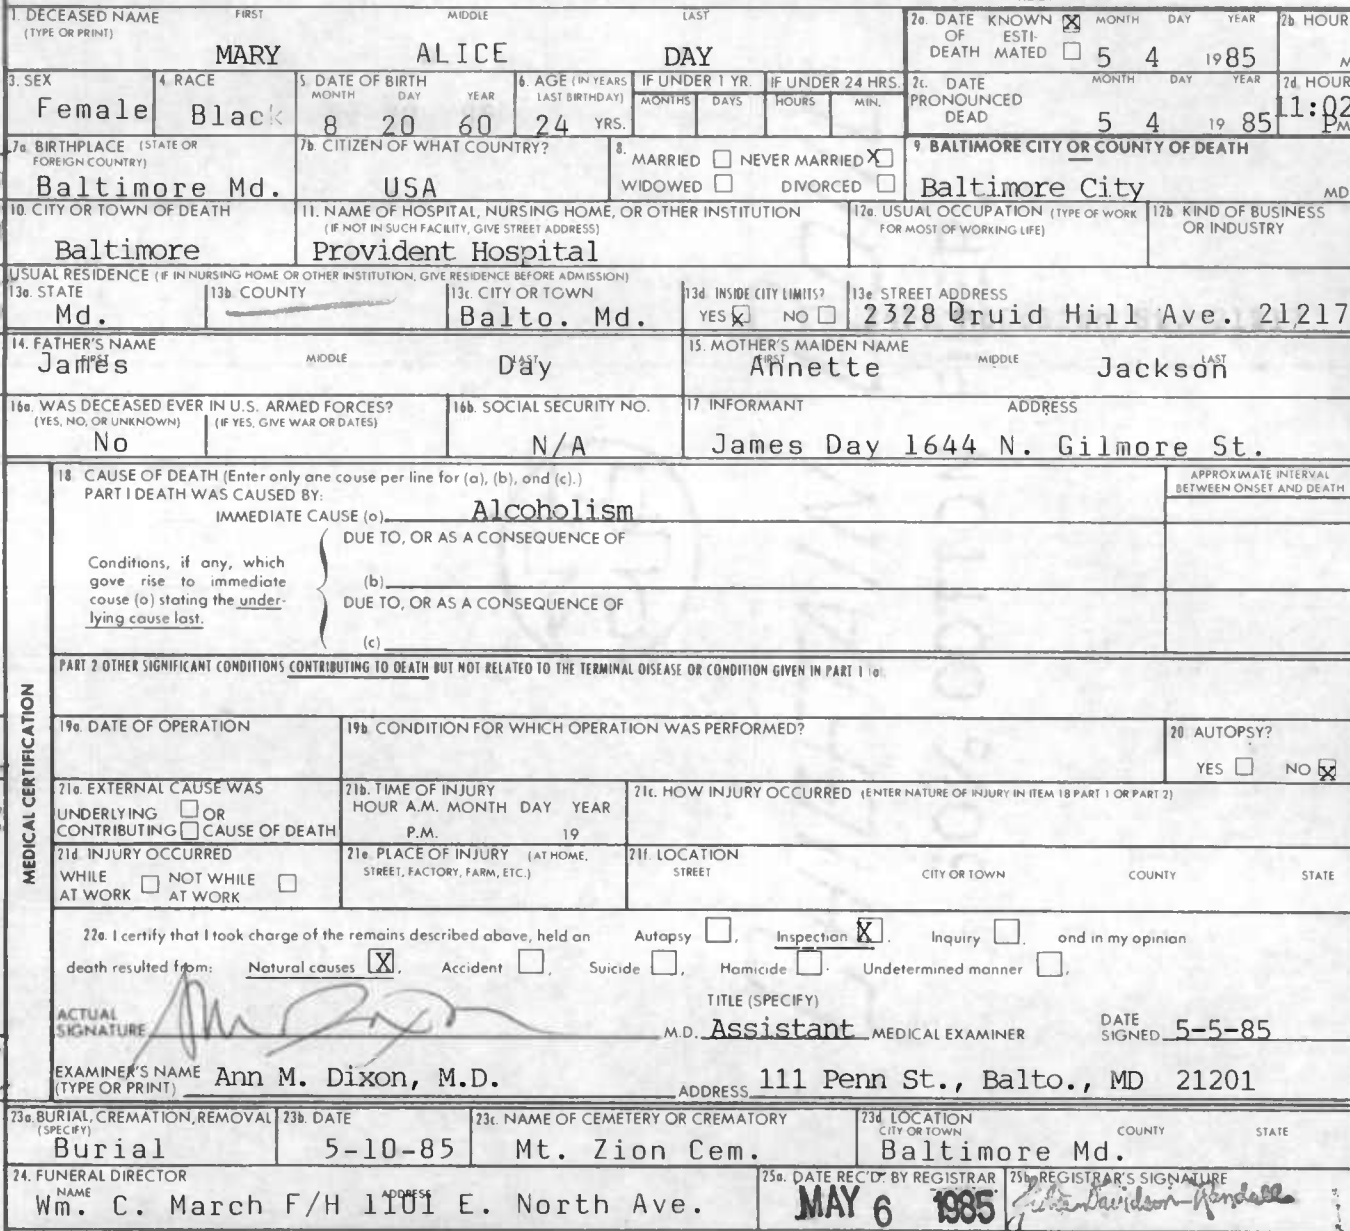 1. DECEASED NAME FIRST MIDDLE LAST
(TYPE OR PRINT)
MARY ALICE DAY
2a. DATE KNOWN [X] MONTH DAY YEAR
OF ESTI-
DEATH MATED 5 4 1985
2b. HOUR
M
3. SEX
Female
4. RACE
Black
5. DATE OF BIRTH
MONTH DAY YEAR
8 20 60
6. AGE (IN YEARS
LAST BIRTHDAY)
24 YRS.
IF UNDER 1 YR.
MONTHS DAYS
IF UNDER 24 HRS.
HOURS MIN.
2c. DATE MONTH DAY YEAR
PRONOUNCED
DEAD 5 4 19 85
2d. HOUR
11:02
PM
7a. BIRTHPLACE (STATE OR
FOREIGN COUNTRY)
Baltimore Md.
7b. CITIZEN OF WHAT COUNTRY?
USA
8.
MARRIED NEVER MARRIED X
WIDOWED DIVORCED
9. BALTIMORE CITY OR COUNTY OF DEATH
Baltimore City MD
10. CITY OR TOWN OF DEATH
Baltimore
11. NAME OF HOSPITAL, NURSING HOME, OR OTHER INSTITUTION
(IF NOT IN SUCH FACILITY, GIVE STREET ADDRESS)
Provident Hospital
12a. USUAL OCCUPATION (TYPE OF WORK
FOR MOST OF WORKING LIFE)
12b. KIND OF BUSINESS
OR INDUSTRY
USUAL RESIDENCE (IF IN NURSING HOME OR OTHER INSTITUTION, GIVE RESIDENCE BEFORE ADMISSION)
13a. STATE
Md.
13b. COUNTY
13c. CITY OR TOWN
Balto. Md.
13d. INSIDE CITY LIMITS?
YES X NO
13e. STREET ADDRESS
2328 Druid Hill Ave. 21217
14. FATHER'S NAME
FIRST MIDDLE LAST
James Day
15. MOTHER'S MAIDEN NAME
FIRST MIDDLE LAST
Annette Jackson
16a. WAS DECEASED EVER IN U.S. ARMED FORCES?
(YES, NO, OR UNKNOWN) (IF YES, GIVE WAR OR DATES)
No
16b. SOCIAL SECURITY NO.
N/A
17. INFORMANT ADDRESS
James Day 1644 N. Gilmore St.
MEDICAL CERTIFICATION
18. CAUSE OF DEATH (Enter only one cause per line for (a), (b), and (c).)
PART I DEATH WAS CAUSED BY:
IMMEDIATE CAUSE (a) Alcoholism
APPROXIMATE INTERVAL
BETWEEN ONSET AND DEATH
DUE TO, OR AS A CONSEQUENCE OF
Conditions, if any, which
gave rise to immediate
cause (a) stating the under-
lying cause last.
(b)
DUE TO, OR AS A CONSEQUENCE OF
(c)
PART 2 OTHER SIGNIFICANT CONDITIONS CONTRIBUTING TO DEATH BUT NOT RELATED TO THE TERMINAL DISEASE OR CONDITION GIVEN IN PART 1 (a)
19a. DATE OF OPERATION
19b. CONDITION FOR WHICH OPERATION WAS PERFORMED?
20. AUTOPSY?
YES NO X
21a. EXTERNAL CAUSE WAS
UNDERLYING OR
CONTRIBUTING CAUSE OF DEATH
21b. TIME OF INJURY
HOUR A.M. MONTH DAY YEAR
P.M. 19
21c. HOW INJURY OCCURRED (ENTER NATURE OF INJURY IN ITEM 18 PART 1 OR PART 2)
21d. INJURY OCCURRED
WHILE NOT WHILE
AT WORK AT WORK
21e. PLACE OF INJURY (AT HOME,
STREET, FACTORY, FARM, ETC.)
21f. LOCATION
STREET CITY OR TOWN COUNTY STATE
22a. I certify that I took charge of the remains described above, held an Autopsy , Inspection X , Inquiry , and in my opinion
death resulted from: Natural causes X , Accident , Suicide , Homicide . Undetermined manner ,
ACTUAL
SIGNATURE Ann Dixon M.D.
TITLE (SPECIFY)
Assistant MEDICAL EXAMINER
DATE
SIGNED 5-5-85
EXAMINER'S NAME
(TYPE OR PRINT) Ann M. Dixon, M.D.
ADDRESS 111 Penn St., Balto., MD 21201
23a. BURIAL, CREMATION, REMOVAL
(SPECIFY)
Burial
23b. DATE
5-10-85
23c. NAME OF CEMETERY OR CREMATORY
Mt. Zion Cem.
23d. LOCATION
CITY OR TOWN COUNTY STATE
Baltimore Md.
24. FUNERAL DIRECTOR
NAME ADDRESS
Wm. C. March F/H 1101 E. North Ave.
25a. DATE REC'D. BY REGISTRAR
MAY 6 1985
25b. REGISTRAR'S SIGNATURE
Davidson-Randall